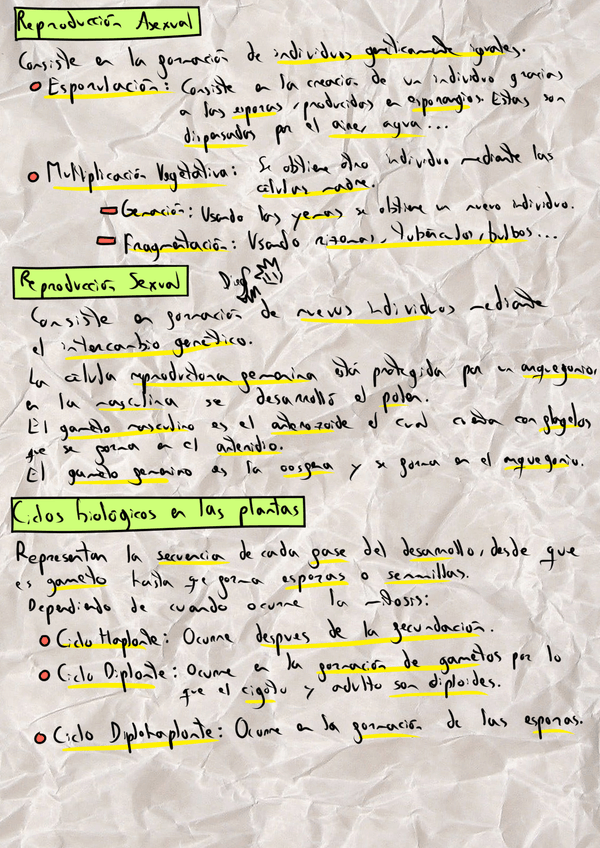 Reproducción Asexual
Consiste en la formación de individuos genéticamente iguales.
Esporulación: Consiste en la creación de un individuo gracias
a las esporas, producidas en esporangios. Estas son
dispersadas por el aire, agua...
Multiplicación Vegetativa: Se obtiene otro individuo mediante las
células madre.
Gemación: Usando las yemas se obtiene un nuevo individuo.
Fragmentación: Usando rizomas, Tubérculos, bulbos...
Reproducción Sexual
Consiste en formación de nuevos individuos mediante
el intercambio genético.
La célula reproductora femenina está protegida por un arquegonio,
en la masculina se desarrolla el polen.
El gameto masculino es el anterozoide el cual cuenta con flagelos
que se forma en el anteridio.
El gameto femenino es la oosfera y se forma en el arquegonio.
Ciclos biológicos en las plantas
Representan la secuencia de cada fase del desarrollo, desde que
es gameto hasta que forma esporas o semillas.
Dependiendo de cuando ocurre la :
Ciclo Haplonte: Ocurre despues de la fecundación.
Ciclo Diplonte: Ocurre en la formación de gametos por lo
que el cigoto y adulto son diploides.
Ciclo Diplohaplonte: Ocurre en la formación de las esporas.